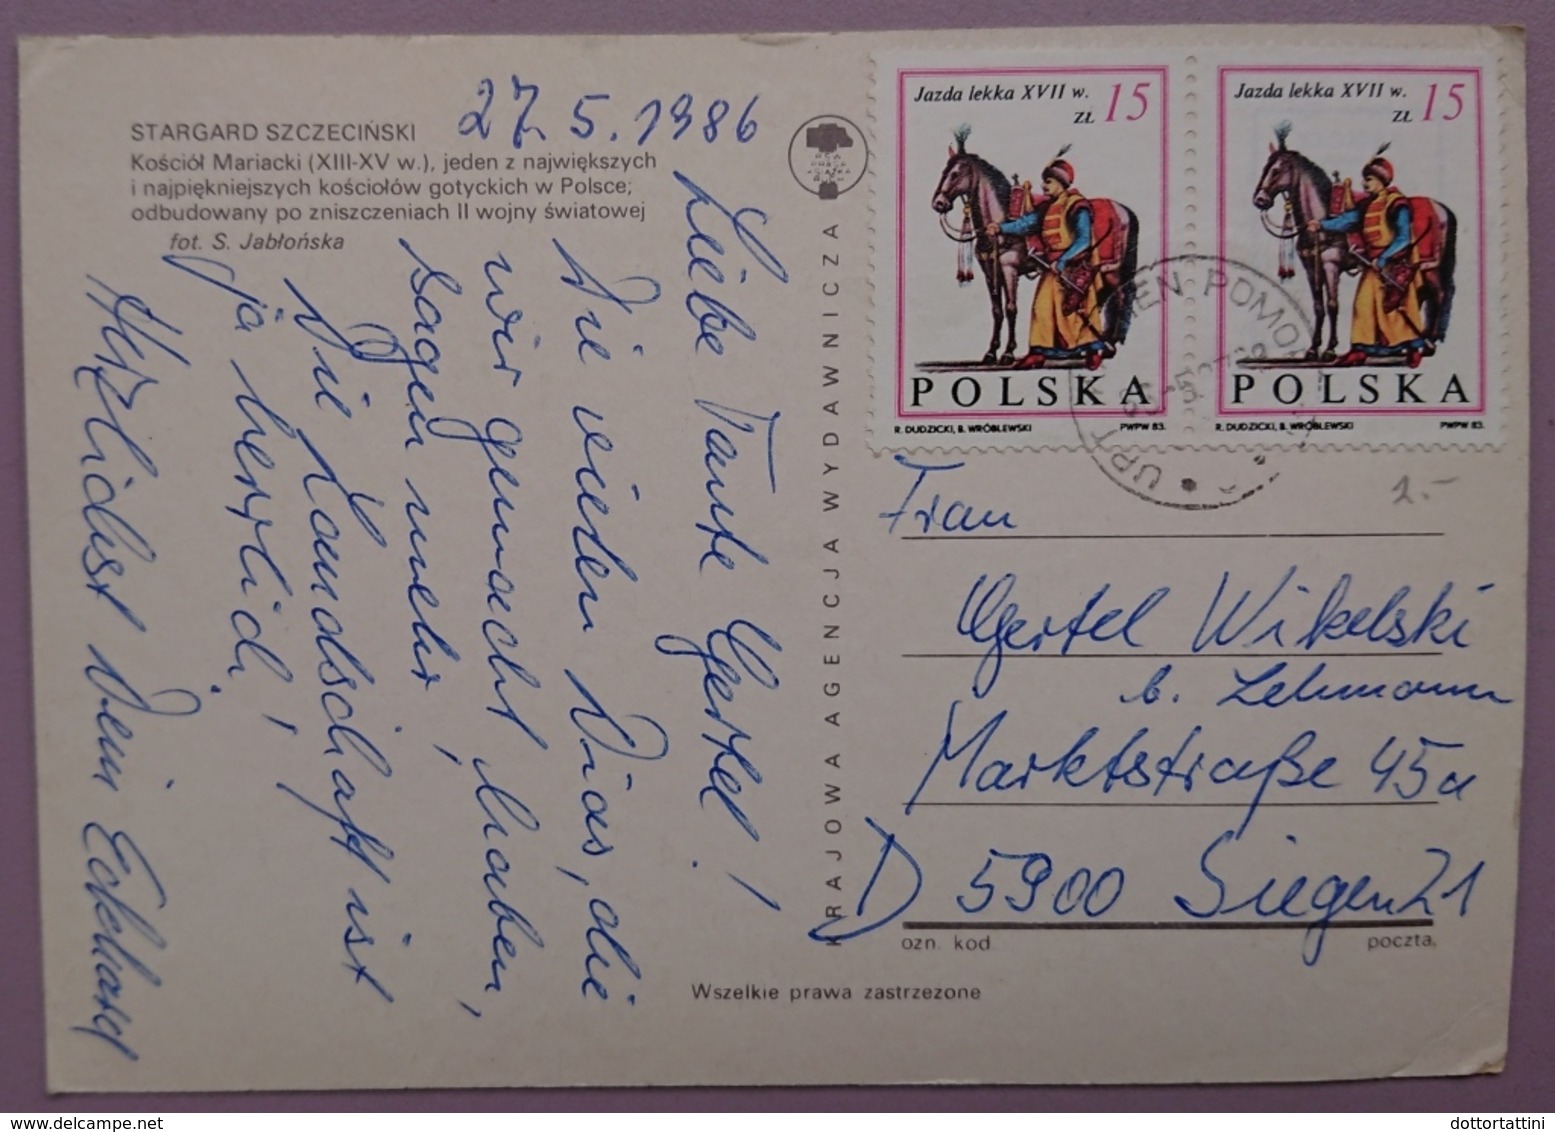 STARGARD SZCZECIŃSKI
Kościół Mariacki (XIII-XV w.), jeden z największych
i najpiękniejszych kościołów gotyckich w Polsce;
odbudowany po zniszczeniach II wojny światowej
fot. S. Jabłońska
27. 5. 1986
Liebe Tante Gertel!
Die vielen Dias, die
wir gemacht haben,
sagen mehr,
Die Landschaft ist
ja herrlich,
Herzlichst Dein Eckhard
KRAJOWA AGENCJA WYDAWNICZA
Jazda lekka XVII w.
ZŁ 15
POLSKA
R. DUDZICKI, B. WRÓBLEWSKI PWPW 83.
Jazda lekka XVII w.
ZŁ 15
POLSKA
R. DUDZICKI, B. WRÓBLEWSKI PWPW 83.
UPT
IEŃ POMO
2.-
Frau
Gertel Wikelski
b. Lehmann
Marktstraße 45a
D 5900 Siegen 21
ozn. kod poczta.
Wszelkie prawa zastrzeżone
dottortattini